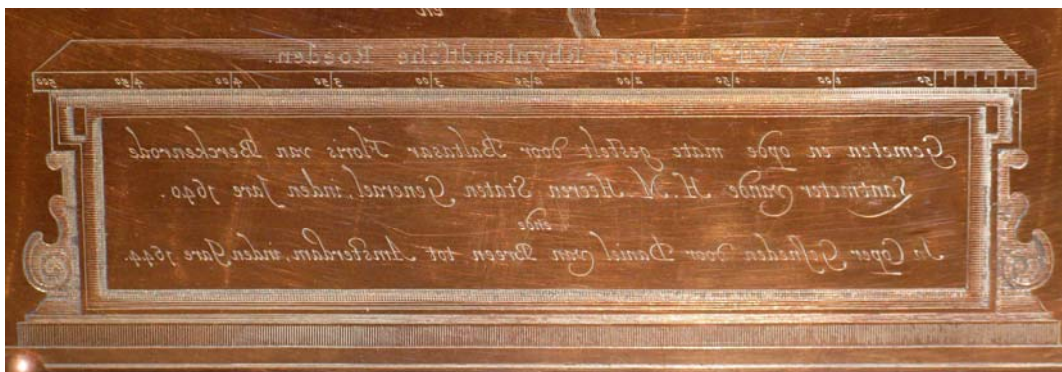 en
Vyff hondert Rhynlandtsche Roeden.
50 1|00 1|50 2|00 2|50 3|00 3|50 4|00 4|50 500
Gemeten en opde mate gestelt door Baltasar Floris van Berckenrode
Lantmeter vande H. M. Heeren Staten Generael, inden Jare 1640.
ende
In Coper Gesneden door Daniel van Breen tot Amsterdam, inden Jare 1644.